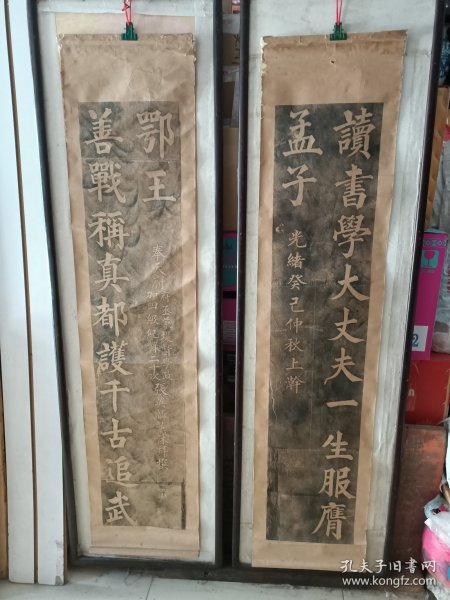 讀書學大丈夫一生服膺
孟子
光緒癸巳仲秋上澣
善戰稱真都護千古追武
鄂王
孔夫子旧书网
www.kongfz.com